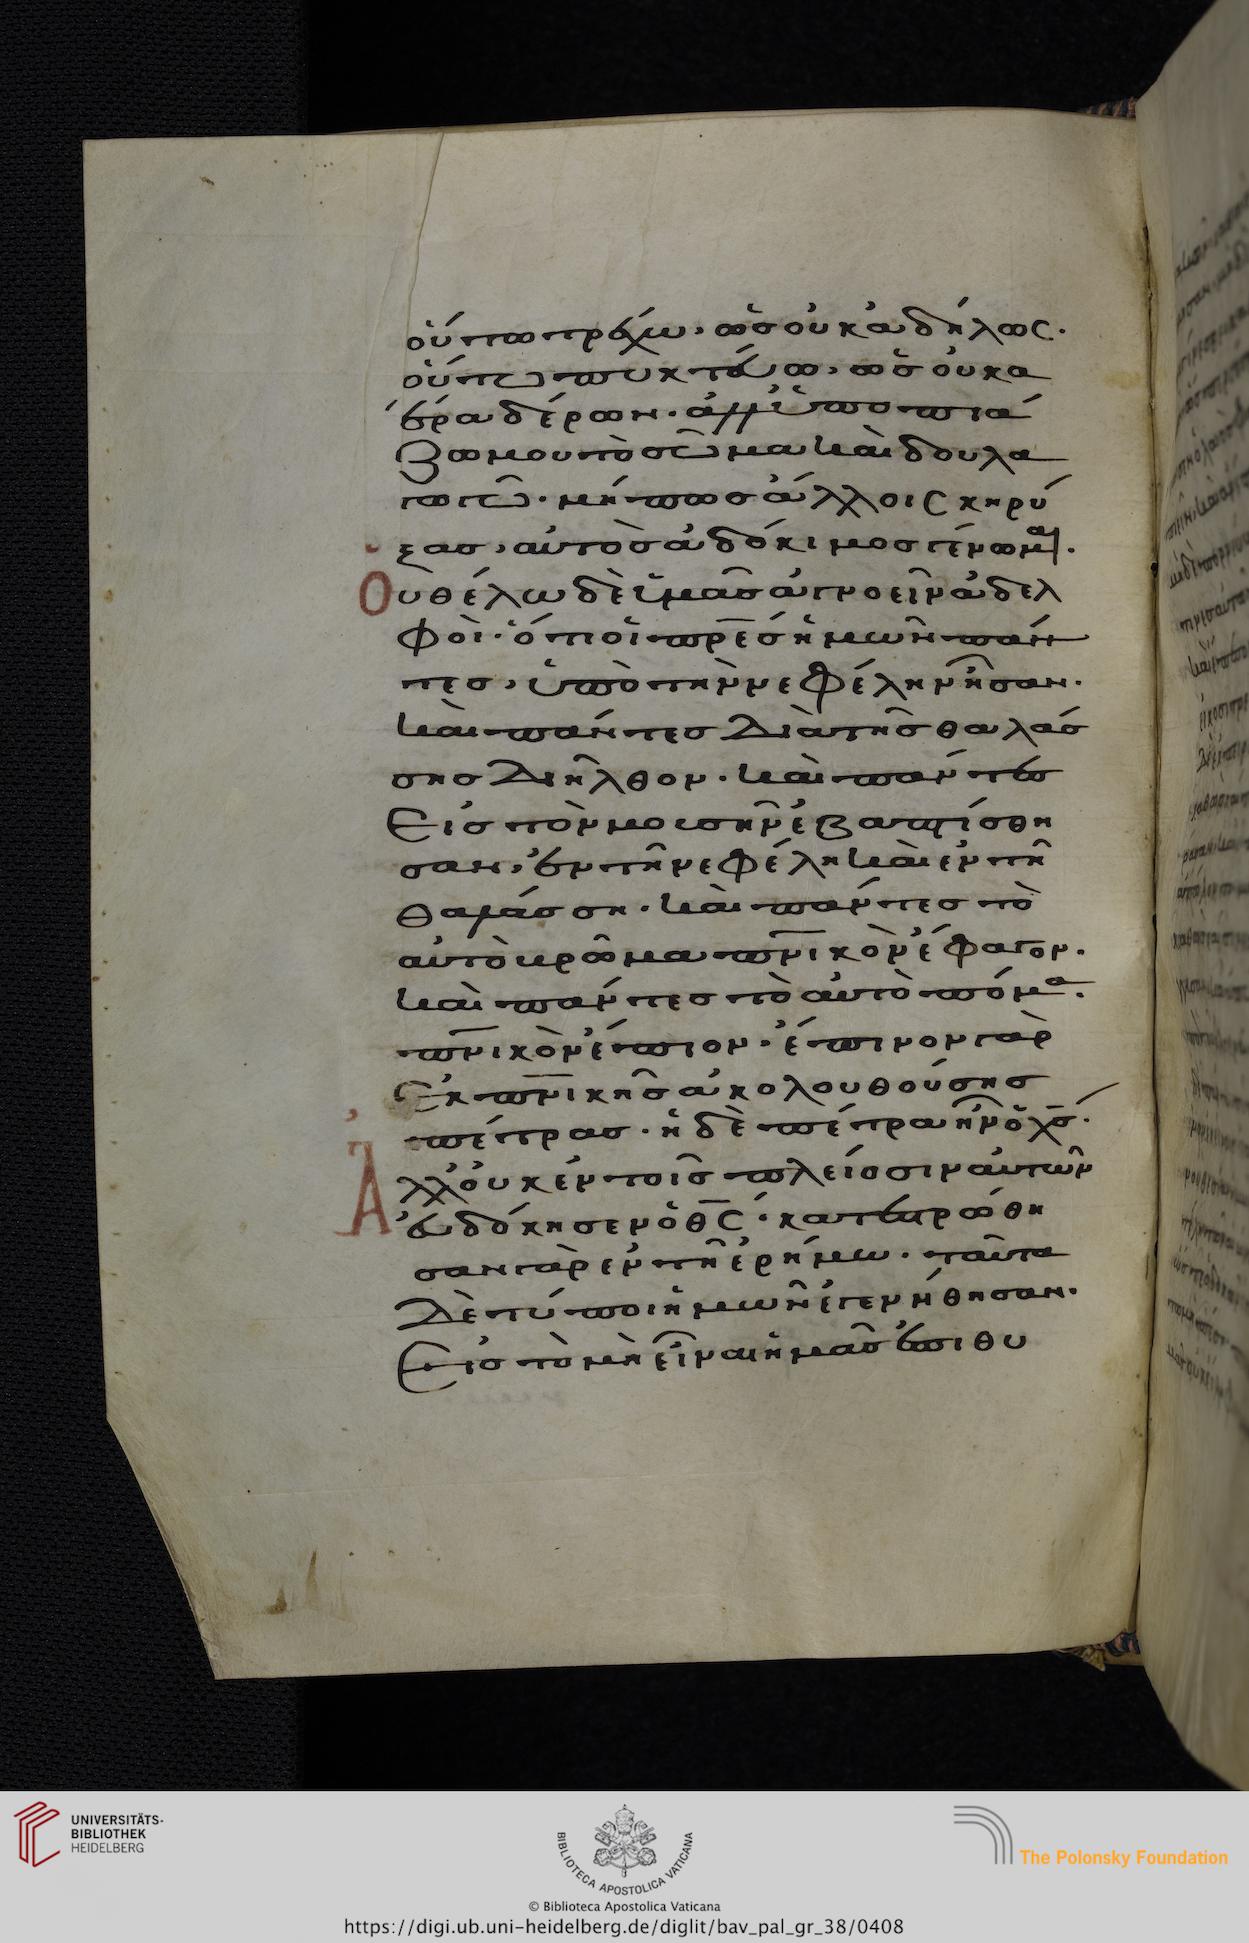 οὕτω τρέχω, ὡς οὐκ ἀδήλως.
οὕτω πυκτεύω, ὡς οὐκ ἀ
έρα δέρων. ἀλλ' ὑπωπιά
ζω μου τὸ σῶμα καὶ δουλα
γωγῶ. μήπως ἄλλοις κηρύ
ξας, αὐτὸς ἀδόκιμος γένωμαι.
Οὐ θέλω δὲ ὑμᾶς ἀγνοεῖν ἀδελ
φοὶ. ὅτι οἱ πρ̅ε̅ς ἡμῶν πάν
τες, ὑπὸ τὴν νεφέλην ἦσαν.
καὶ πάντες διὰ τῆς θαλάσ
σης διῆλθον. καὶ πάντες
εἰς τὸν μωσῆν ἐβαπτίσθη
σαν, ἐν τῆ νεφέλη καὶ ἐν τῆ
θαλάσση. καὶ πάντες τὸ
αὐτὸ βρῶμα πν̅ικὸν ἔφαγον.
καὶ πάντες τὸ αὐτὸ πόμα.
πν̅ικὸν ἔπιον. ἔπινον γὰρ
ἐκ πν̅ικῆς ἀκολουθούσης
πέτρας. ἡ δὲ πέτρα ἦν ὁ χ̅ς̅.
Ἀλλ' οὐκ ἐν τοῖς πλείοσιν αὐτῶν
εὐδόκησεν ὁ θ̅ς̅. κατεστρώθη
σαν γὰρ ἐν τῆ ἐρήμω. ταῦτα
δὲ τύποι ἡμῶν ἐγενήθησαν.
εἰς τὸ μὴ εἶναι ἡμᾶς ἐπιθυ
UNIVERSITÄTS-
BIBLIOTHEK
HEIDELBERG
BIBLIOTECA APOSTOLICA VATICANA
The Polonsky Foundation
© Biblioteca Apostolica Vaticana
https://digi.ub.uni-heidelberg.de/diglit/bav_pal_gr_38/0408